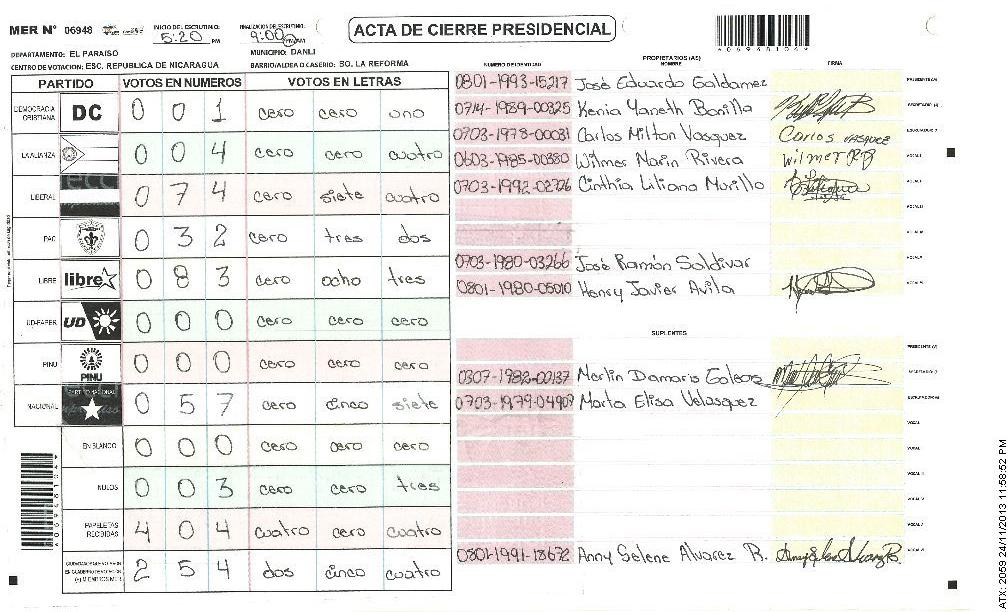 MER N° 06948
INICIO DEL ESCRUTINIO: 5:20 PM
FINALIZACION DEL ESCRUTINIO: 9:00 PM
ACTA DE CIERRE PRESIDENCIAL
DEPARTAMENTO: EL PARAÍSO
MUNICIPIO: DANLI
CENTRO DE VOTACION: ESC. REPUBLICA DE NICARAGUA
BARRIO/ALDEA O CASERIO: SO. LA REFORMA
PARTIDO VOTOS EN NUMEROS VOTOS EN LETRAS
DEMOCRACIA CRISTIANA DC 0 0 1 cero cero uno
LA ALIANZA 0 0 4 cero cero cuatro
LIBERAL 0 7 4 cero siete cuatro
PAC 0 3 2 cero tres dos
LIBRE libre 0 8 3 cero ocho tres
UD-FAPER UD 0 0 0 cero cero cero
PINU PINU 0 0 0 cero cero cero
NACIONAL 0 5 7 cero cinco siete
EN BLANCO 0 0 0 cero cero cero
NULOS 0 0 3 cero cero tres
PAPELETAS RECIBIDAS 4 0 4 cuatro cero cuatro
2 5 4 dos cinco cuatro
PROPIETARIOS (AS)
NUMERO DE IDENTIDAD NOMBRE FIRMA
0801-1993-15217 José Eduardo Galdamez
0714-1989-00325 Kenia Yaneth Bonilla
0703-1978-00031 Carlos Milton Vasquez Carlos VASQUEZ
0603-1985-00380 Wilmer Narin Rivera
0703-1992-02726 Cinthia Liliana Murillo
0703-1980-03266 José Ramón Saldivar
0801-1980-05010 Henry Javier Avila
SUPLENTES
0307-1982-00137 Merlin Damaris Galeas
0703-1979-04909 Marta Elisa Velasquez
0801-1991-18672 Anny Selene Alvarez R.
ATX: 2059 24/11/2013 11:58:52 PM